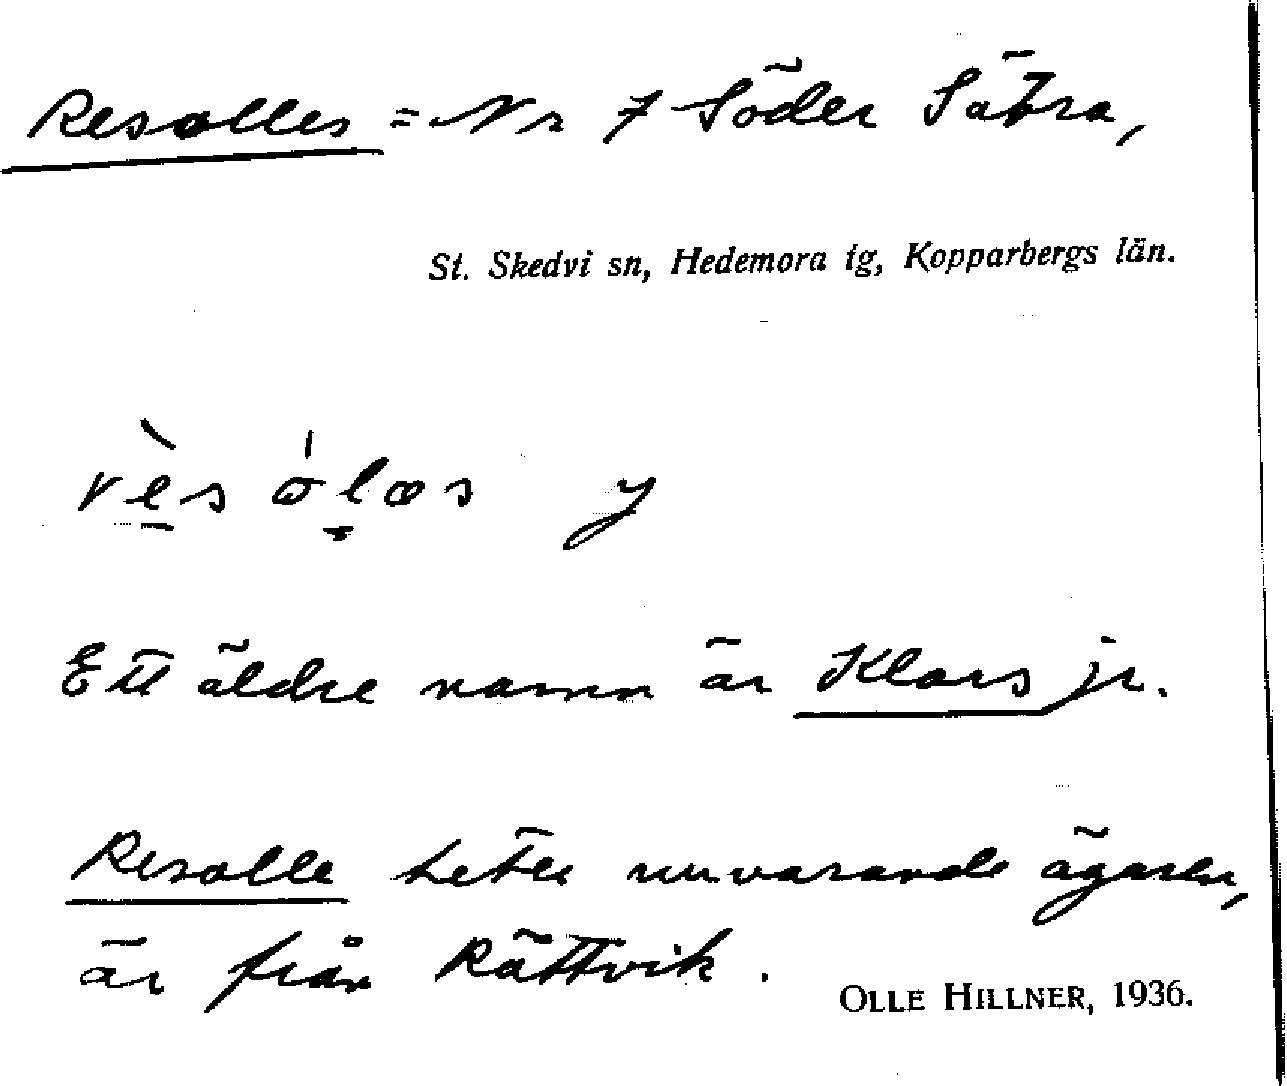 Resolles = Nr 7 Söder Sätra,
St. Skedvi sn, Hedemora tg, Kopparbergs län.
rès ólæs y
Ett äldre namn är Klars jr.
Resolle heter nuvarande ägaren,
är från Rättvik.
OLLE HILLNER, 1936.